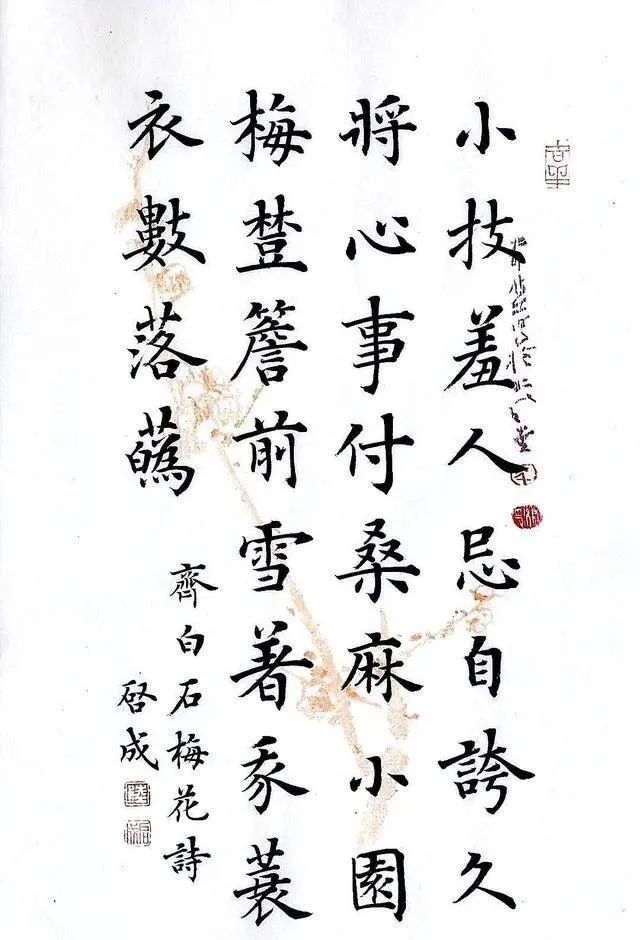 小技羞人忌自誇久
將心事付桑麻小園
梅簷前雪著我蓑
衣數落蘤
齊白石梅花詩
啓成